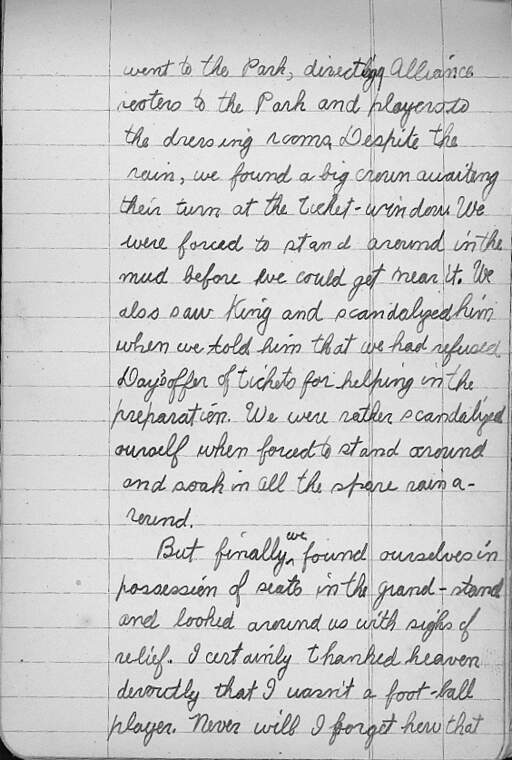 went to the Park, directing Alliance
rooters to the Park and players to
the dressing rooms. Despite the
rain, we found a big crown awaiting
their turn at the ticket-window. We
were forced to stand around in the
mud before we could get near it. We
also saw King and scandalyzed him
when we told him that we had refused
Day's offer of tickets for helping in the
preparation. We were rather scandalyzed
ourself when forced to stand around
and soak in all the spare rain a-
round.
But finally we found ourselves in
possession of seats in the grand-stand
and looked around us with sighs of
relief. I certainly thanked heaven
devoutly that I wasn't a foot-ball
player. Never will I forget how that